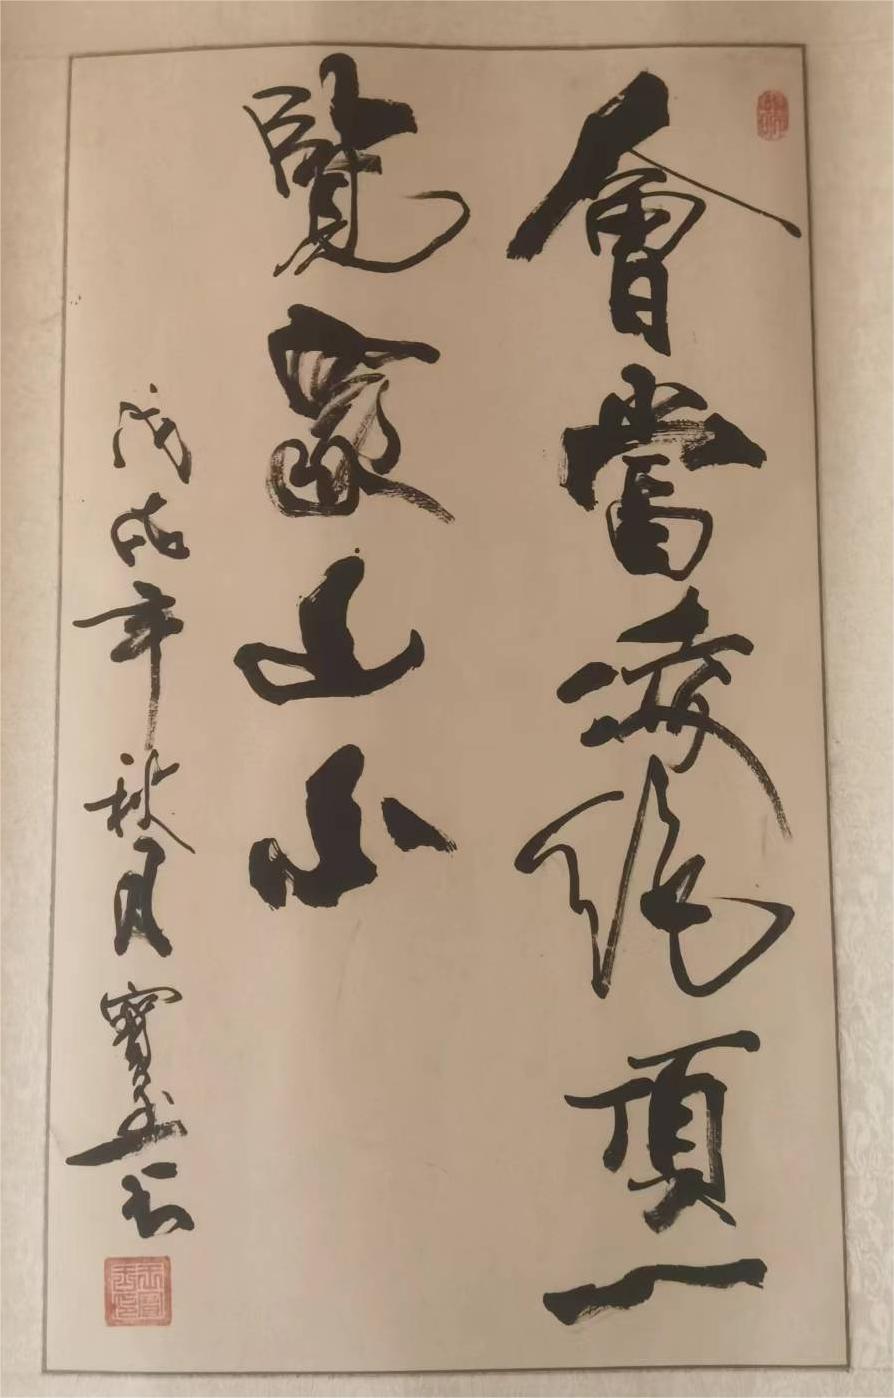 會當凌絕頂一
覽眾山小
戊戌年秋月寶玉书